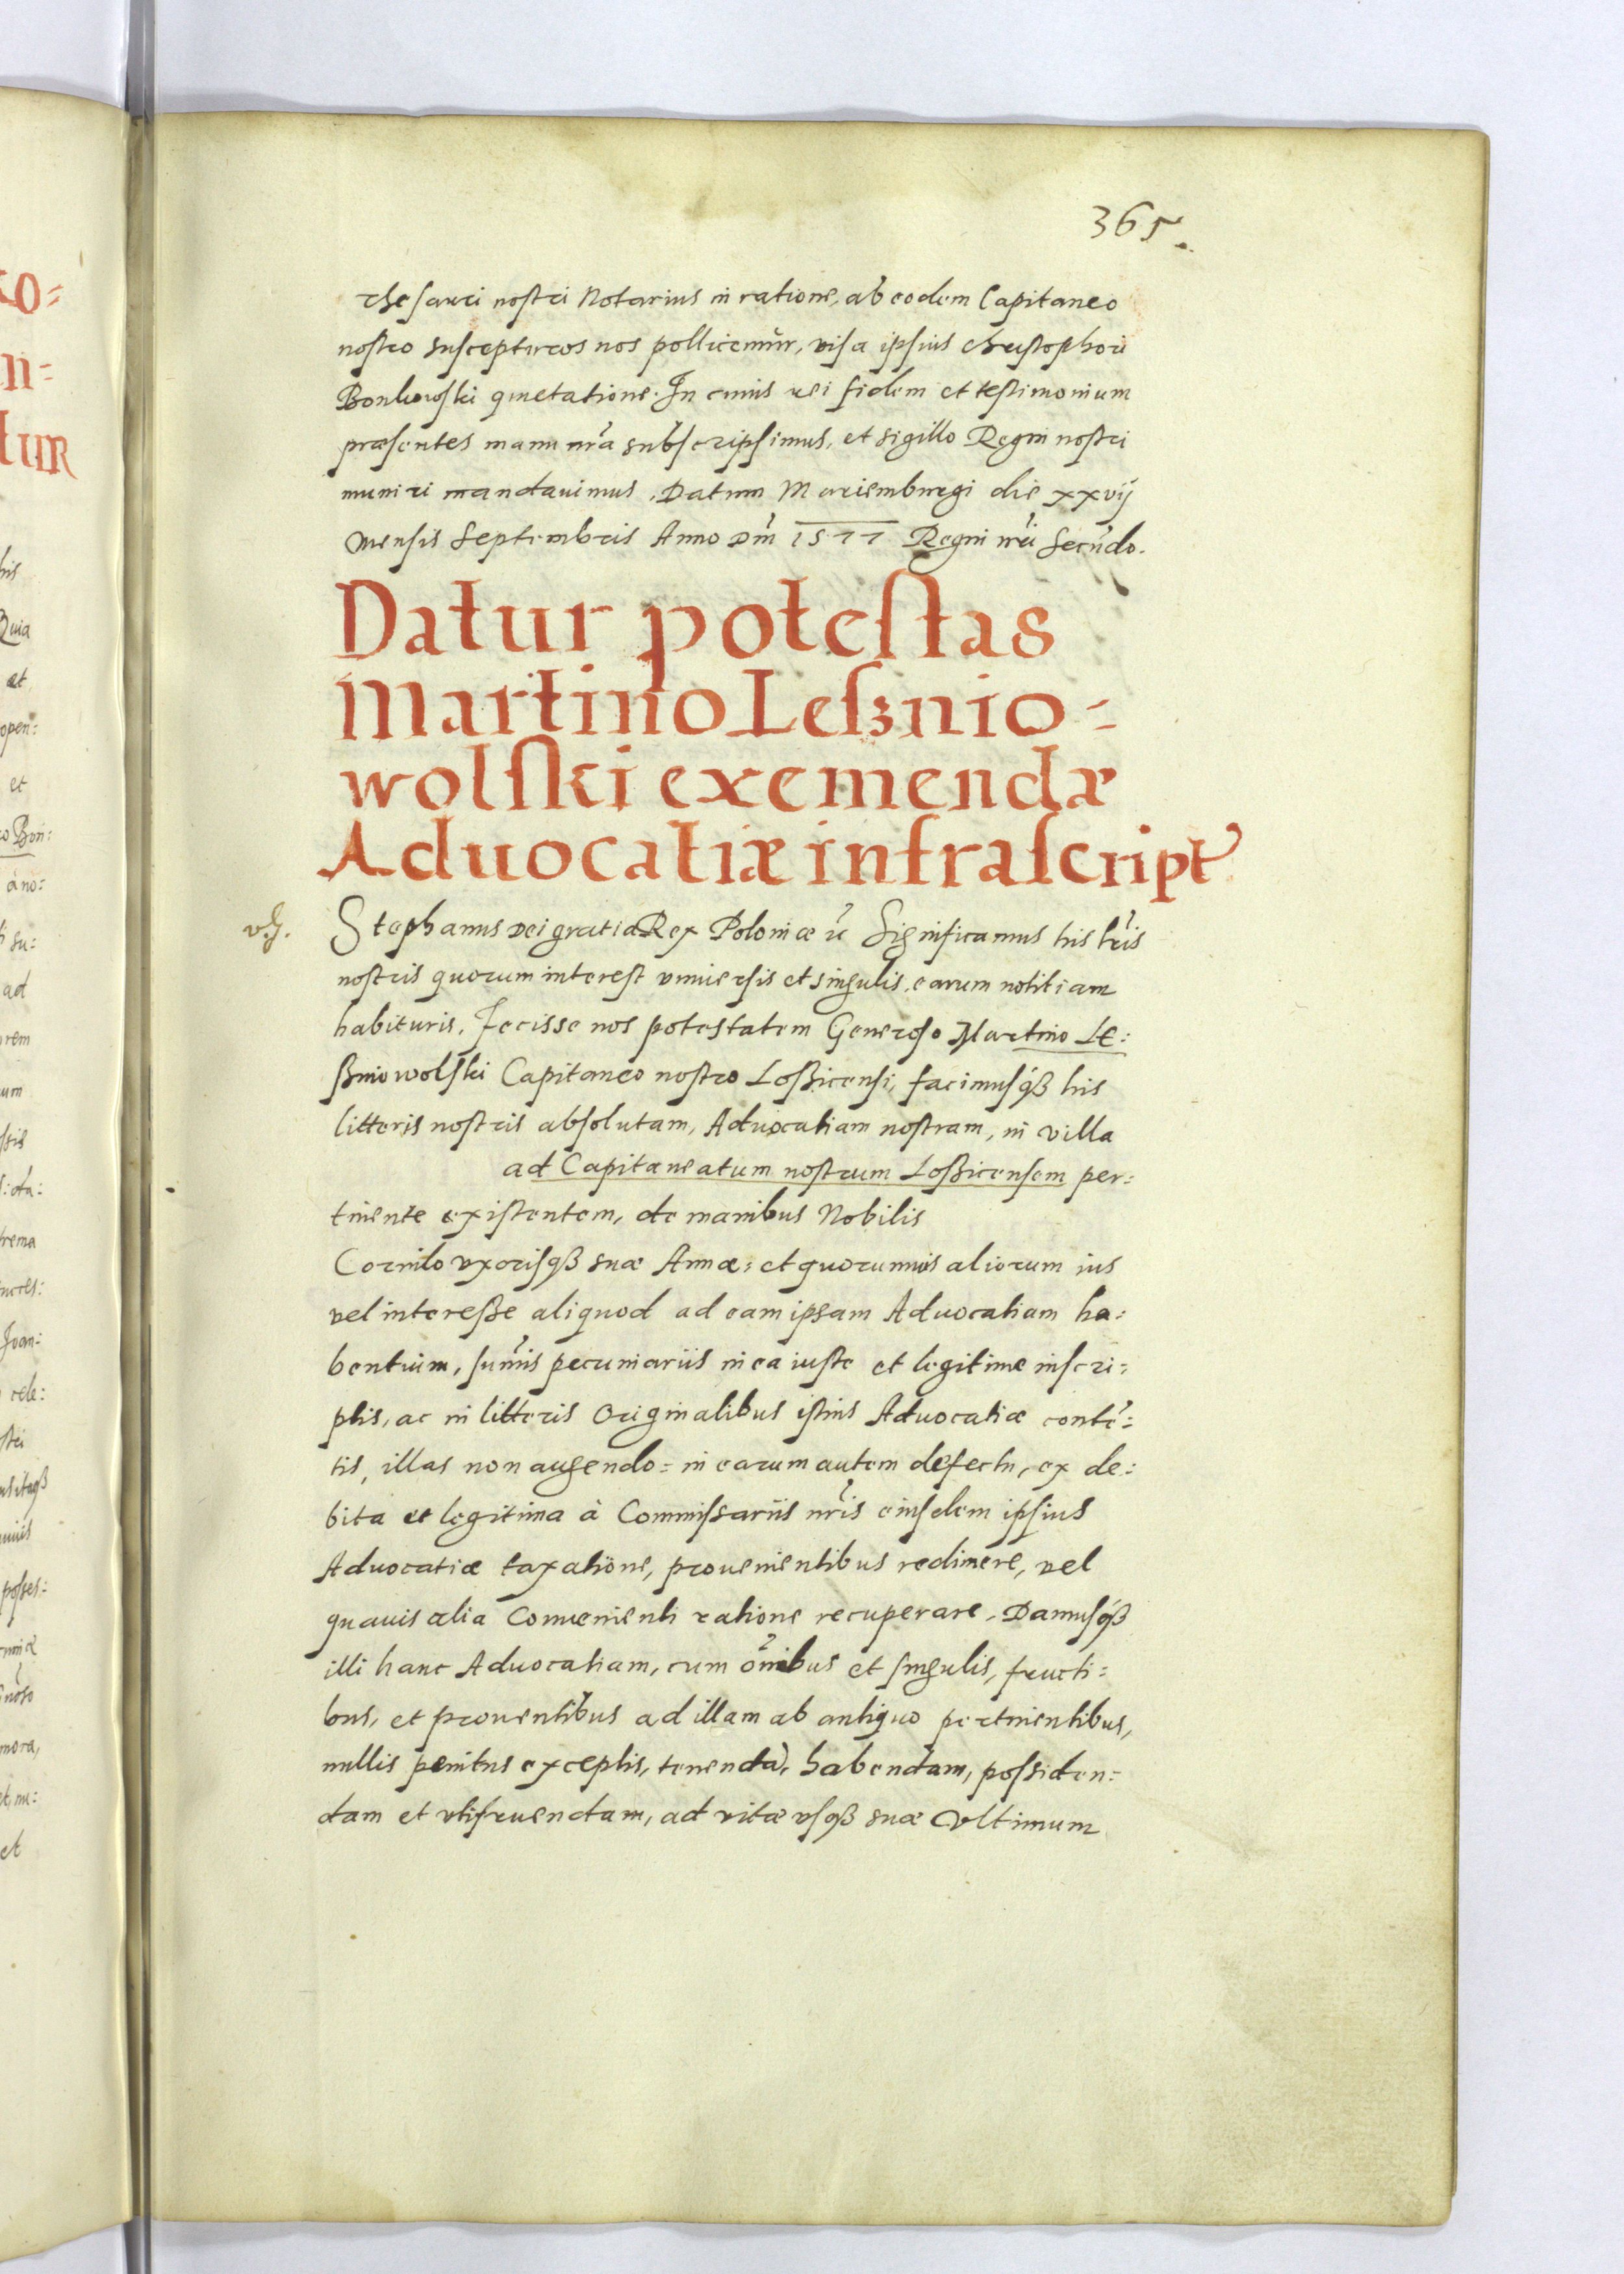 365.
thesauri nostri Notarius in ratione, ab eodem Capitaneo
nostro suscepturos nos pollicemur, visa ipsius Christophori
Bonkowski quietatione. In cuius rei fidem et testimonium
præsentes manu nrã subscripsimus, et sigillo Regni nostri
muniri mandauimus. Datum Mariemburgi die xxvij
mensis Septembris Anno Dm̃ 1577 Regni nr̃i Secundo.
Datur potestas
Martino Leſznio=
wolſki exemendæ
Aduocatiæ infraſcript
Stephanus Dei gratia Rex Poloniæ Significamus his lr̃is
nostris quorum interest vniuersis et singulis, earum notitiam
habituris. Fecisse nos potestatem Generoso Martino Le:
ßniowolski Capitaneo nostro Loßicensi, facimusqß his
litteris nostris absolutam, Aduocatiam nostram, in villa
ad Capitaneatum nostrum Loßicensem per:
tinente existentem, de manibus Nobilis
Cornilo vxorisqß suæ Annæ: et quorumuis aliorum ius
vel intereße aliquod ad eam ipsam Aduocatiam ha:
bentium, sum̃is pecuniariis in ea iuste et legitime inscri:
ptis, ac in litteris Originalibus istius Aduocatiæ contẽ:
tis, illas non augendo: in earum autem defectu, ex de:
bita et legitima à Commissariis nr̃is eiusdem ipsius
Aduocatiæ taxatione, prouenientibus redimere, vel
quauis alia Conuenienti ratione recuperare. Damusqß
illi hanc Aduocatiam, cum om̃ibus et singulis, fructi:
bus, et prouentibus ad illam ab antiquo pertinentibus,
nullis penitus exceptis, tenendã, habendam, possiden:
dam et vtifruendam, ad vitæ vsqß suæ Vltimum